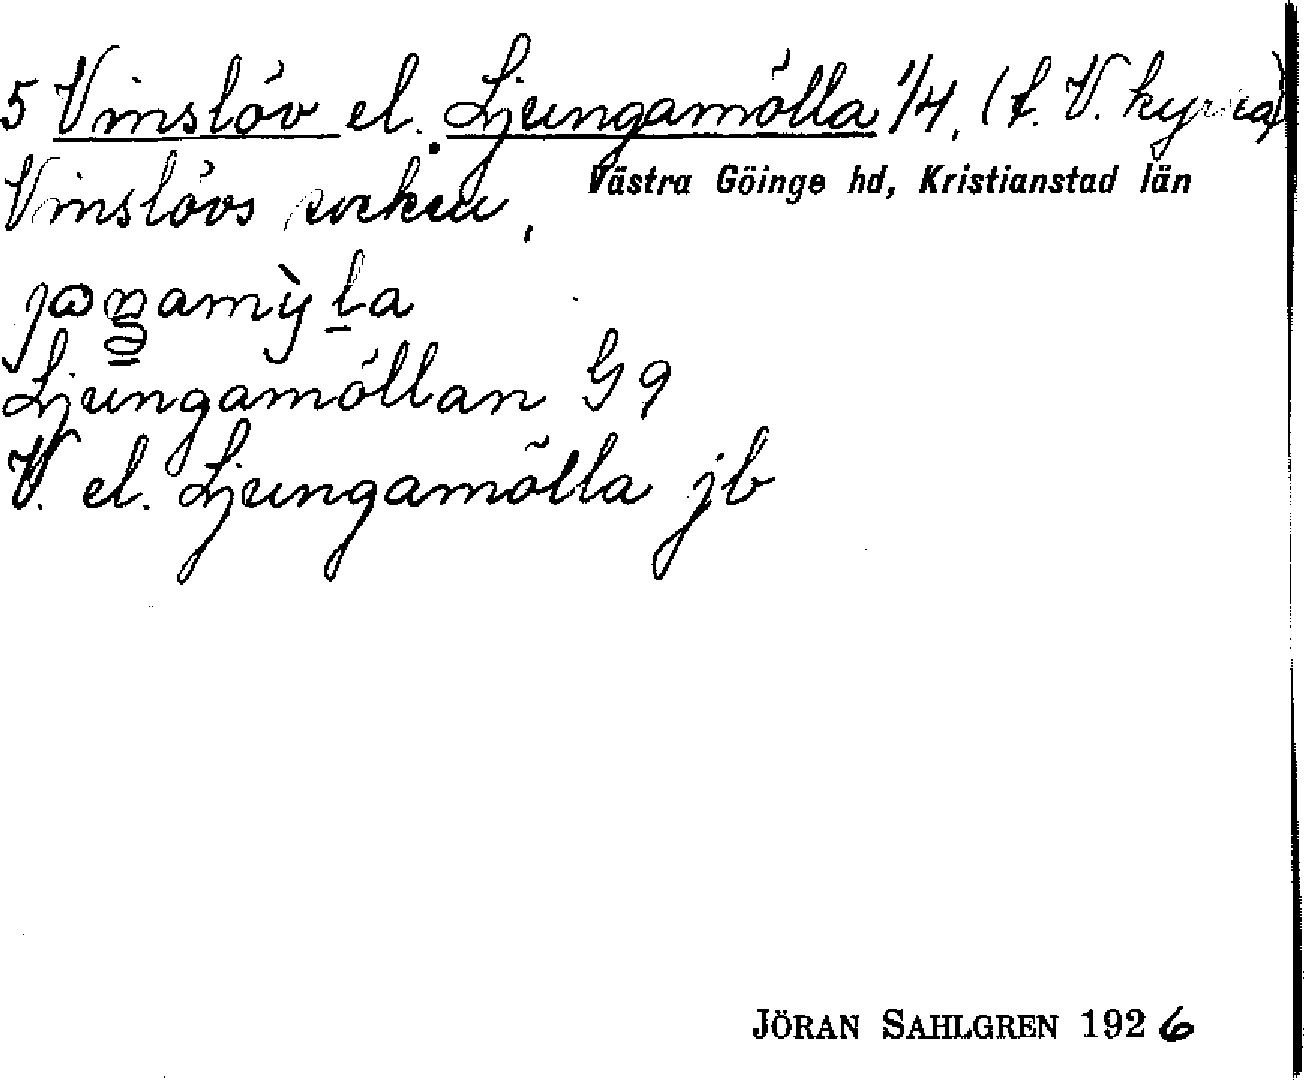 5 Vinslöv el. Ljungamölla 1/4. (f. V. kyrka)
Vinslövs socken, Västra Göinge hd, Kristianstad län
Ljungamöllan G 9
V. el. Ljungamölla jb
JÖRAN SAHLGREN 1926